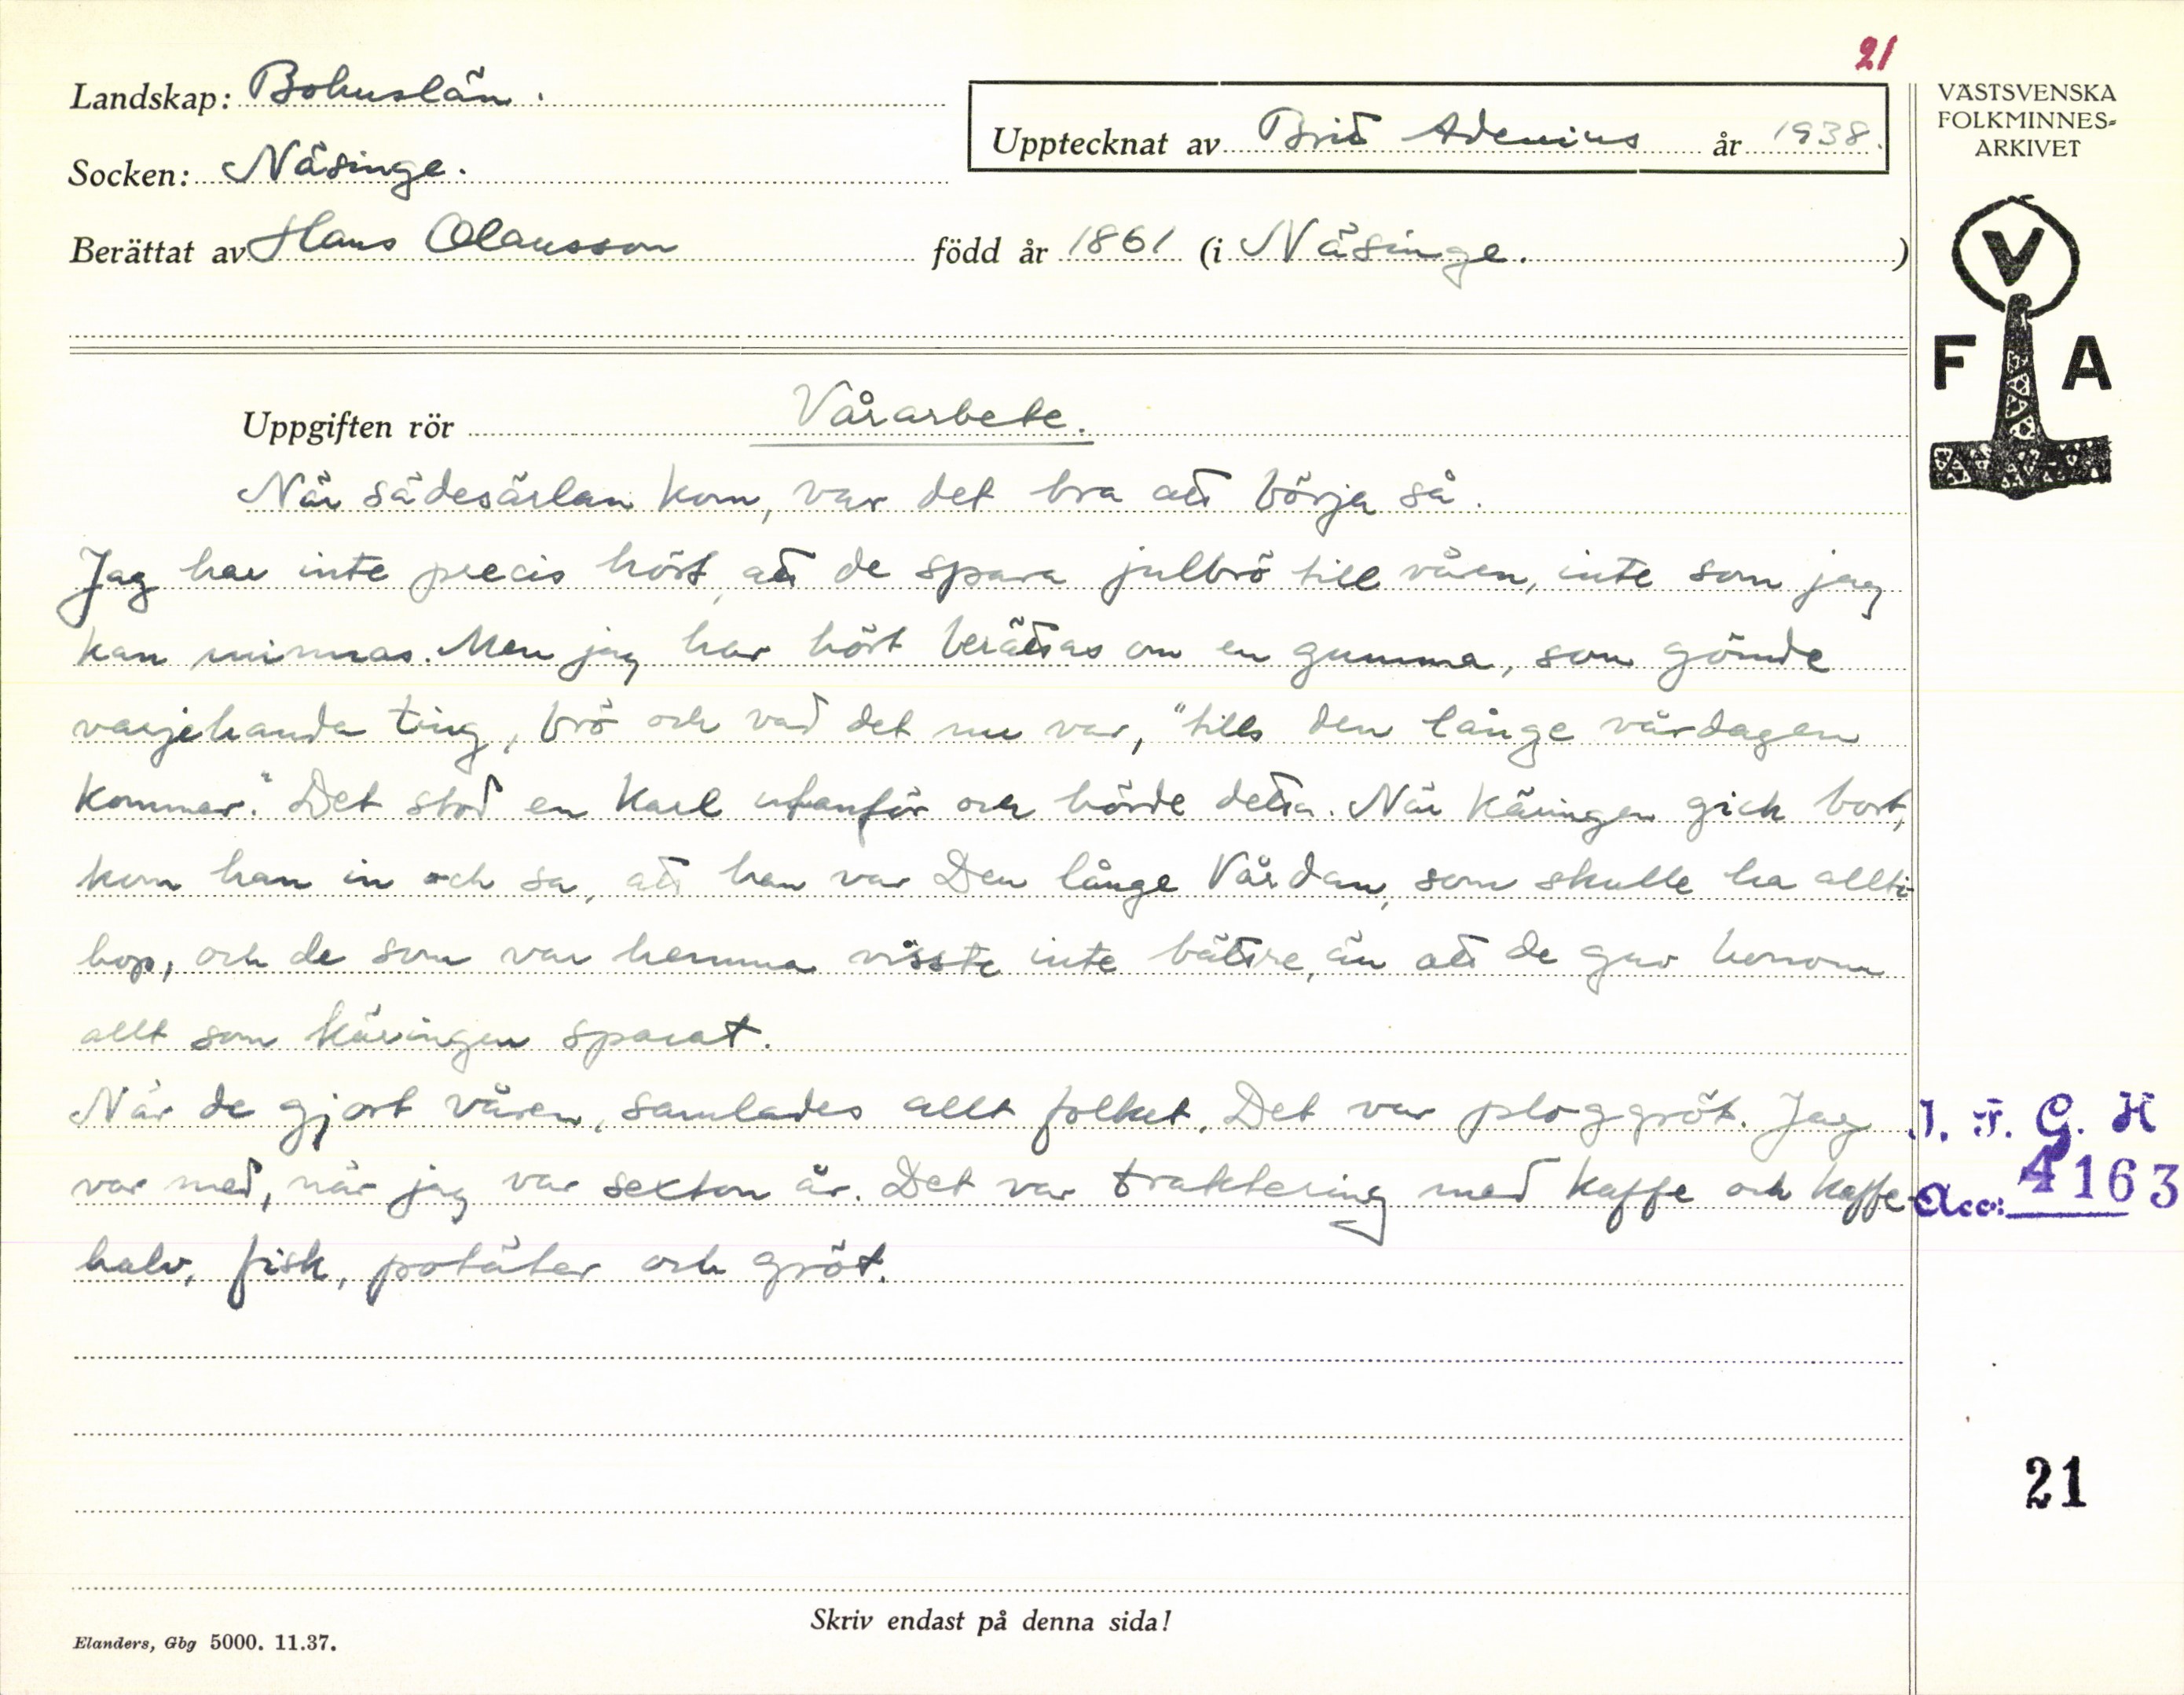 21
Landskap: Bohuslän.
Upptecknat av Brit Adenius år 1938.
Socken: Näsinge.
Berättat av Hans Olausson född år 1861 (i Näsinge.)
VÄSTSVENSKA
FOLKMINNES-
ARKIVET
V
F A
Uppgiften rör Vårarbete.
När sädesärlan kom, var det bra att börja så.
Jag har inte precis hört, att de spara julbrö till våren, inte som jag
kan minnas. Men jag har hört berättas om en gumma, som gömde
varjehanda ting, brö och vad det nu var, "tills den långe vårdagen
kommer." Det stod en karl utanför och hörde detta. När käringen gick bort,
kom han in och sa, att han var Den långe Vårdan, som skulle ha allti-
hop, och de som var hemma visste inte bättre, än att de gav honom
allt som käringen sparat.
När de gjort våren, samlades allt folket. Det var ploggröt. Jag
var med, när jag var sexton år. Det var traktering med kaffe och kaffe-
halv, fisk, potäter och gröt.
I. F. G. H
Acc: 4163
21
Skriv endast på denna sida!
Elanders, Gbg 5000. 11.37.